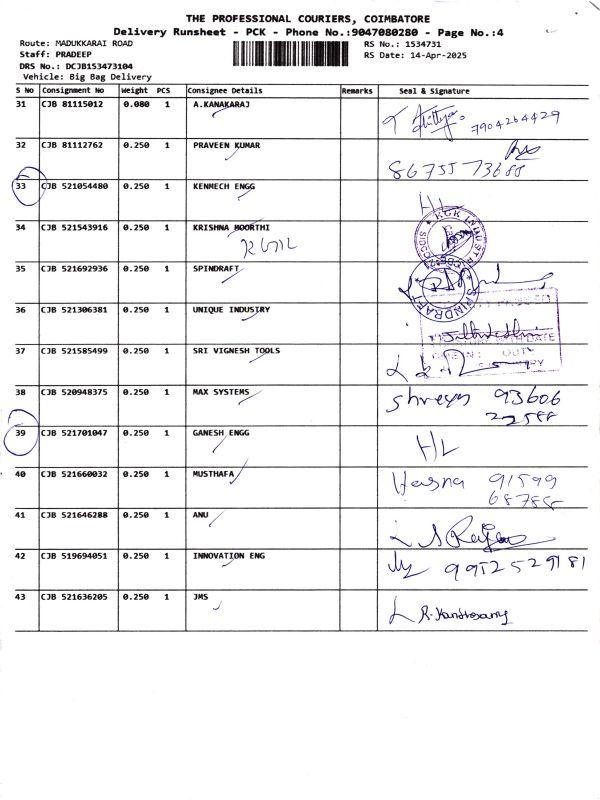 THE PROFESSIONAL COURIERS, COIMBATORE
Delivery Runsheet - PCK - Phone No.:9047080280 - Page No.:4
Route: MADUKKARAI ROAD RS No.: 1534731
Staff: PRADEEP RS Date: 14-Apr-2025
DRS No.: DCJB153473104
Vehicle: Big Bag Delivery
S No Consignment No Weight PCS Consignee Details Remarks Seal & Signature
31 CJB 81115012 0.080 1 A.KANAKARAJ
7904264429
32 CJB 81112762 0.250 1 PRAVEEN KUMAR
86755 73688
33 CJB 521054480 0.250 1 KENMECH ENGG HL
34 CJB 521543916 0.250 1 KRISHNA MOORTHI
35 CJB 521692936 0.250 1 SPINDRAFT
SPINDRAFT
36 CJB 521306381 0.250 1 UNIQUE INDUSTRY
37 CJB 521585499 0.250 1 SRI VIGNESH TOOLS
38 CJB 520948375 0.250 1 MAX SYSTEMS Shreya 93606
22588
39 CJB 521701047 0.250 1 GANESH ENGG HL
40 CJB 521660032 0.250 1 MUSTHAFA Hasna 91599
68788
41 CJB 521646288 0.250 1 ANU
42 CJB 519694051 0.250 1 INNOVATION ENG 9952529181
43 CJB 521636205 0.250 1 JMS R. Kandhasamy